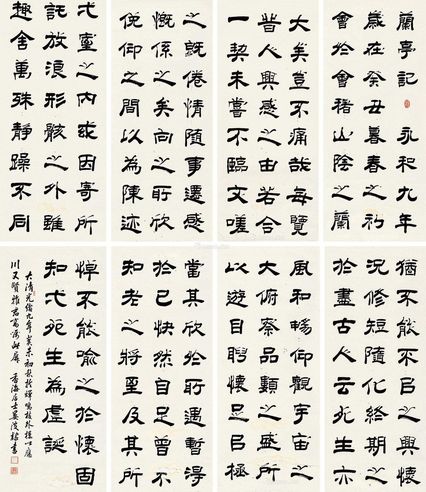 蘭亭記 永和九年
歲在癸丑暮春之初
會於會稽山陰之蘭
大矣豈不痛哉每覽
昔人興感之由若合
一契未嘗不臨文嗟
之既倦情隨事遷感
慨係之矣向之所欣
俛仰之間以為陳迹
弌室之內或因寄所
託放浪形骸之外雖
趣舍萬殊靜躁不同
猶不能以之興懷
況修短隨化終期之
於盡古人云死生亦
風和暢仰觀宇宙之
大俯察品類之盛所
以遊目騁懷足以極
當其欣於所遇暫得
於己快然自足曾不
知老之將至及其所
悼不能喻之於懷固
知弌死生為虛誕
大清光緒九年癸未初秋
香海居士吳浚書